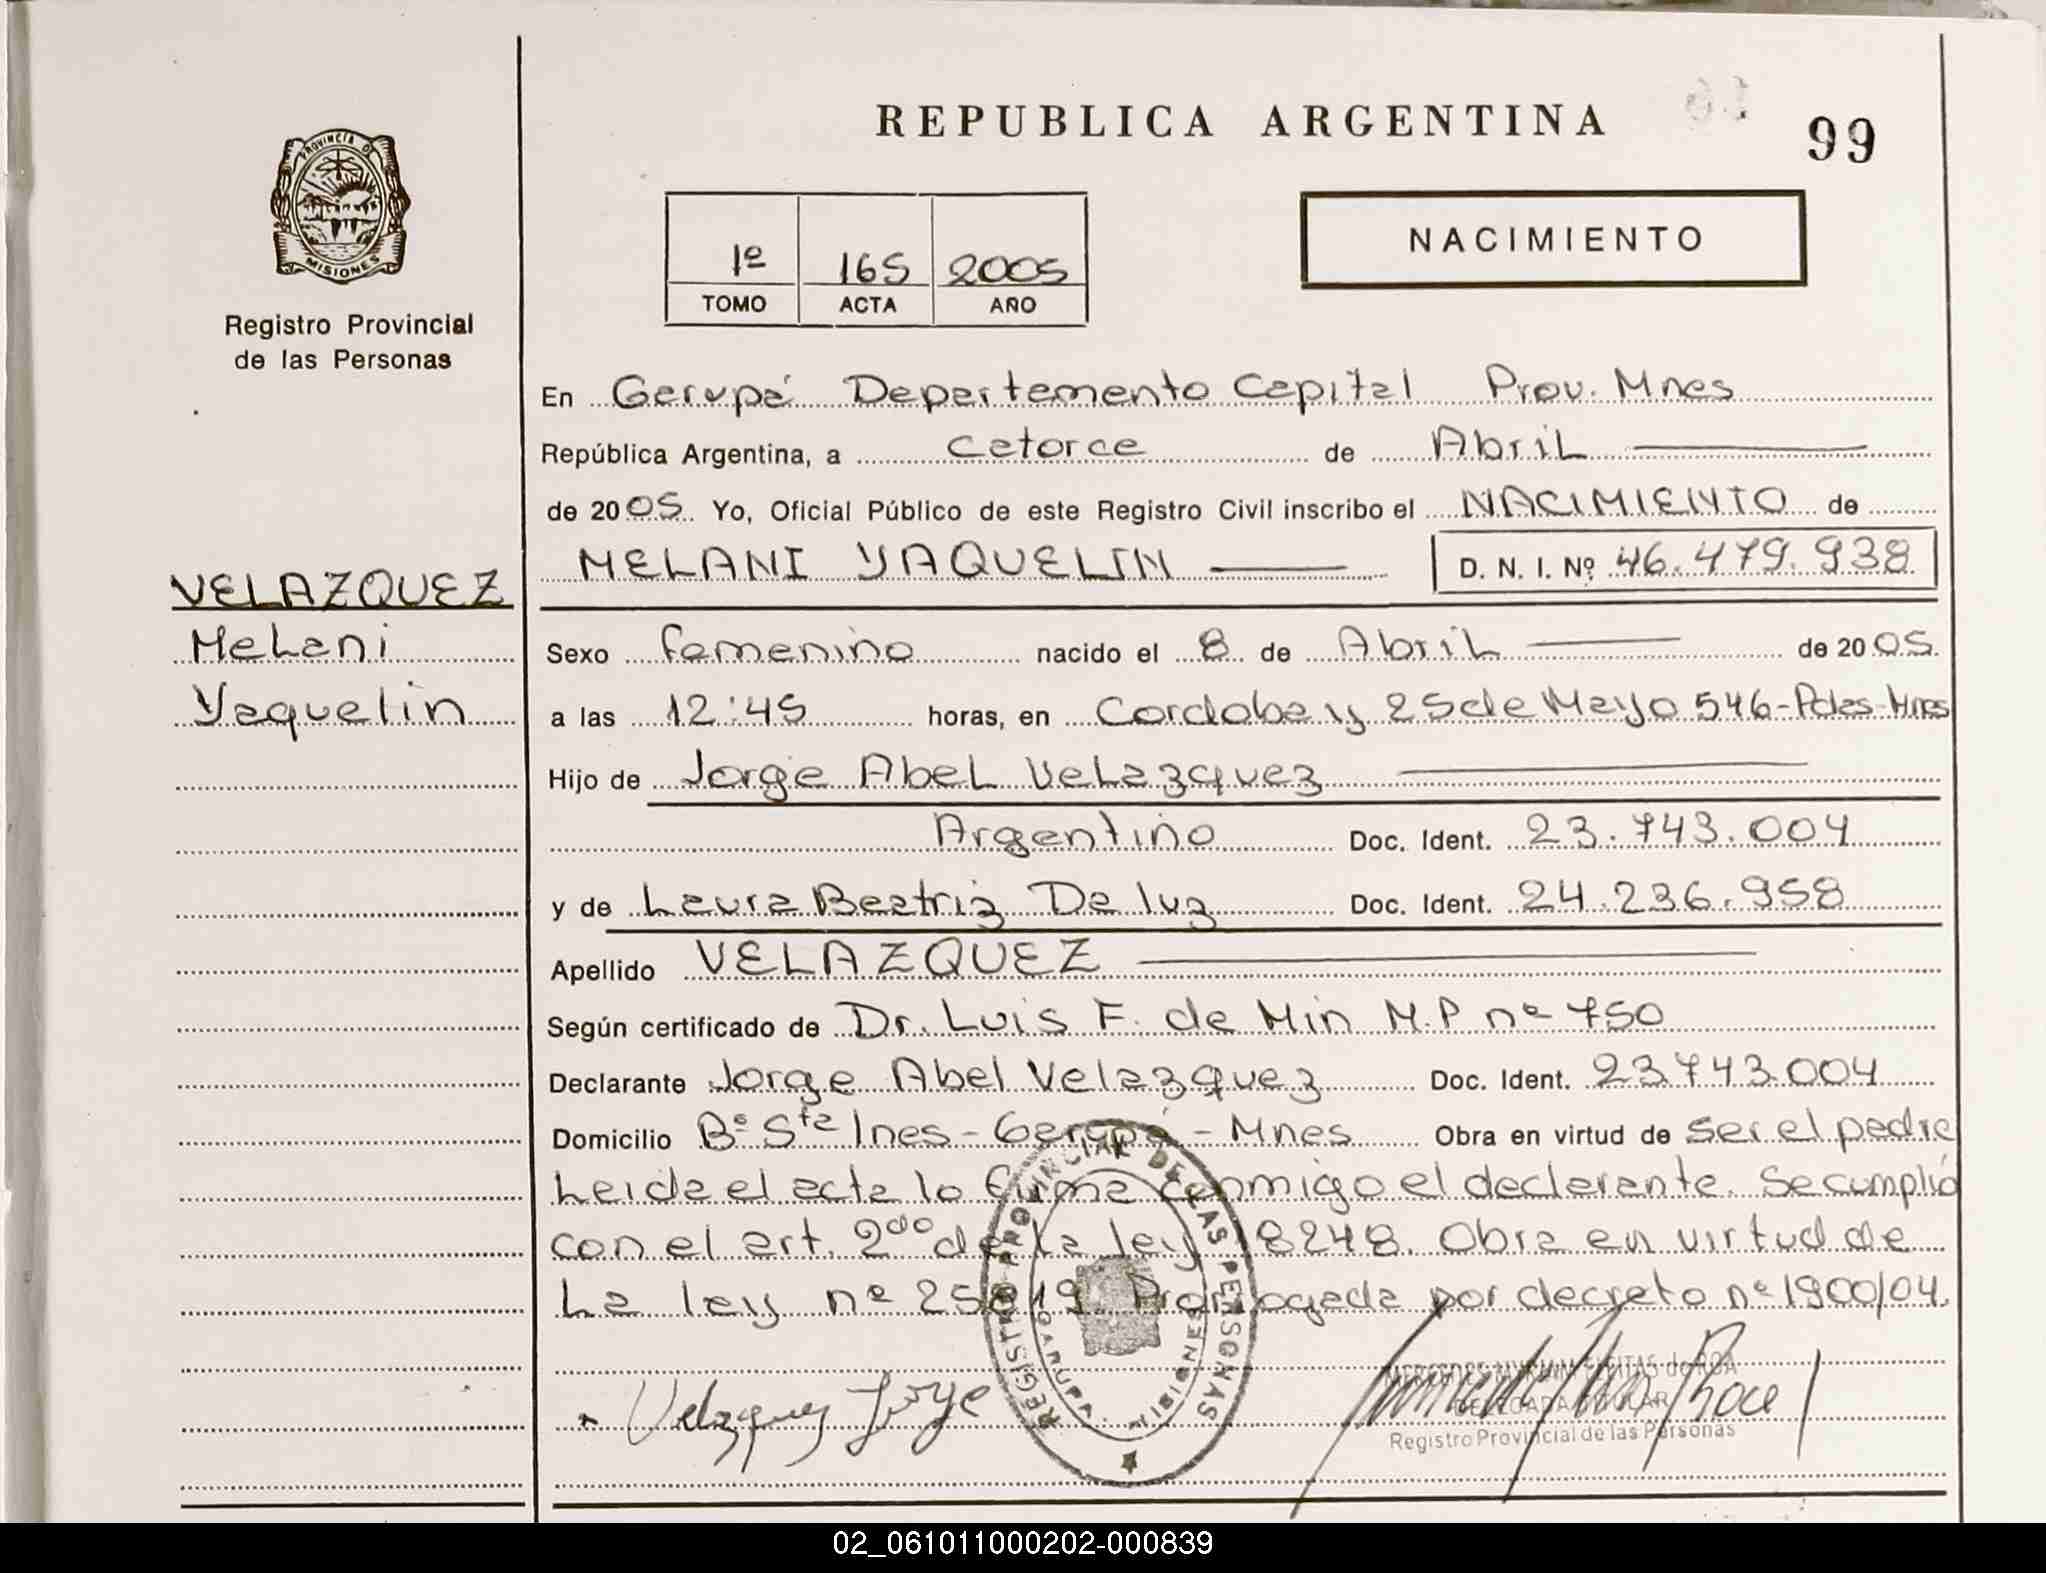 REPUBLICA ARGENTINA
99
PROVINCIA D
MISIONES
Registro Provincial
de las Personas
1º 165 2005
TOMO ACTA AÑO
NACIMIENTO
En Garupá Departamento Capital Prov. Mnes
República Argentina, a catorce de Abril
de 2005 Yo, Oficial Público de este Registro Civil inscribo el NACIMIENTO de
MELANI YAQUELIN D. N. I. Nº 46.479.938
VELAZQUEZ
Melani
Yaquelin
Sexo femenino nacido el 8 de Abril de 2005
a las 12:45 horas, en Cordoba y 25 de Mayo 546-Pdas-Mnes
Hijo de Jorge Abel Velazquez
Argentino Doc. Ident. 23.743.004
y de Laura Beatriz Da luz Doc. Ident. 24.236.958
Apellido VELAZQUEZ
Según certificado de Dr. Luis F. de Min M.P nº 750
Declarante Jorge Abel Velazquez Doc. Ident. 23743.004
Domicilio Bº Sta Ines - Garupá - Mnes Obra en virtud de ser el padre
Leida el acta lo firma conmigo el declarante. Se cumplió
con el art. 2do de la ley 18248. Obra en virtud de
La ley nº 25819 Prorrogada por decreto nº 1900/04.
REGISTRO PROVINCIAL DE LAS PERSONAS
GARUPA MISIONES
Velazquez Jorge
MERCEDES MYRIAM de ROA
DELEGADA TITULAR
Registro Provincial de las Personas
02_061011000202-000839